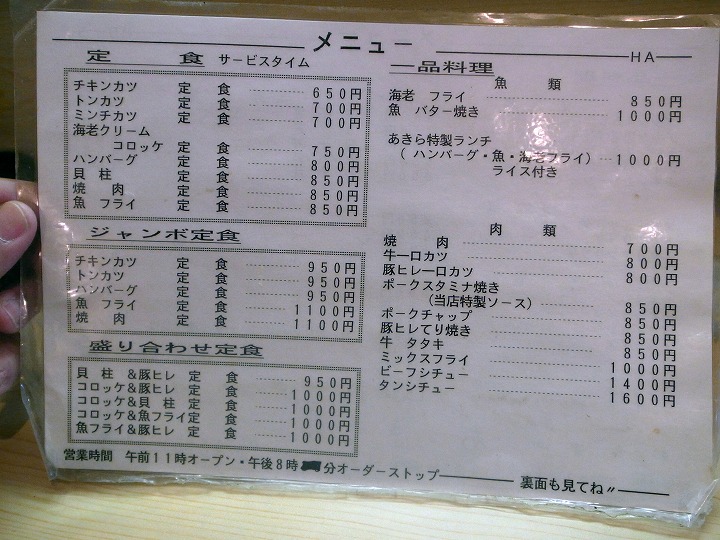 メニュー
HA
定 食 サービスタイム
チキンカツ 定 食 650円
トンカツ 定 食 700円
ミンチカツ 定 食 700円
海老クリーム
コロッケ 定 食 750円
ハンバーグ 定 食 800円
貝 柱 定 食 850円
焼 肉 定 食 850円
魚 フライ 定 食 850円
ジャンボ定食
チキンカツ 定 食 950円
トンカツ 定 食 950円
ハンバーグ 定 食 950円
魚 フライ 定 食 1100円
焼 肉 定 食 1100円
盛り合わせ定食
貝 柱 &豚ヒレ 定 食 950円
コロッケ&豚ヒレ 定 食 1000円
コロッケ&貝 柱 定 食 1000円
コロッケ&魚フライ定 食 1000円
魚フライ&豚ヒレ 定 食 1000円
一品料理
魚 類
海老 フライ 850円
魚 バター焼き 1000円
あきら特製ランチ
(ハンバーグ・魚・海老フライ) 1000円
ライス付き
肉 類
焼 肉 700円
牛一口カツ 800円
豚ヒレ一口カツ 800円
ポークスタミナ焼き
(当店特製ソース) 850円
ポークチャップ 850円
豚ヒレてり焼き 850円
牛 タタキ 850円
ミックスフライ 1000円
ビーフシチュー 1400円
タンシチュー 1600円
営業時間 午前11時オープン・午後8時 分オーダーストップ
裏面も見てね〃